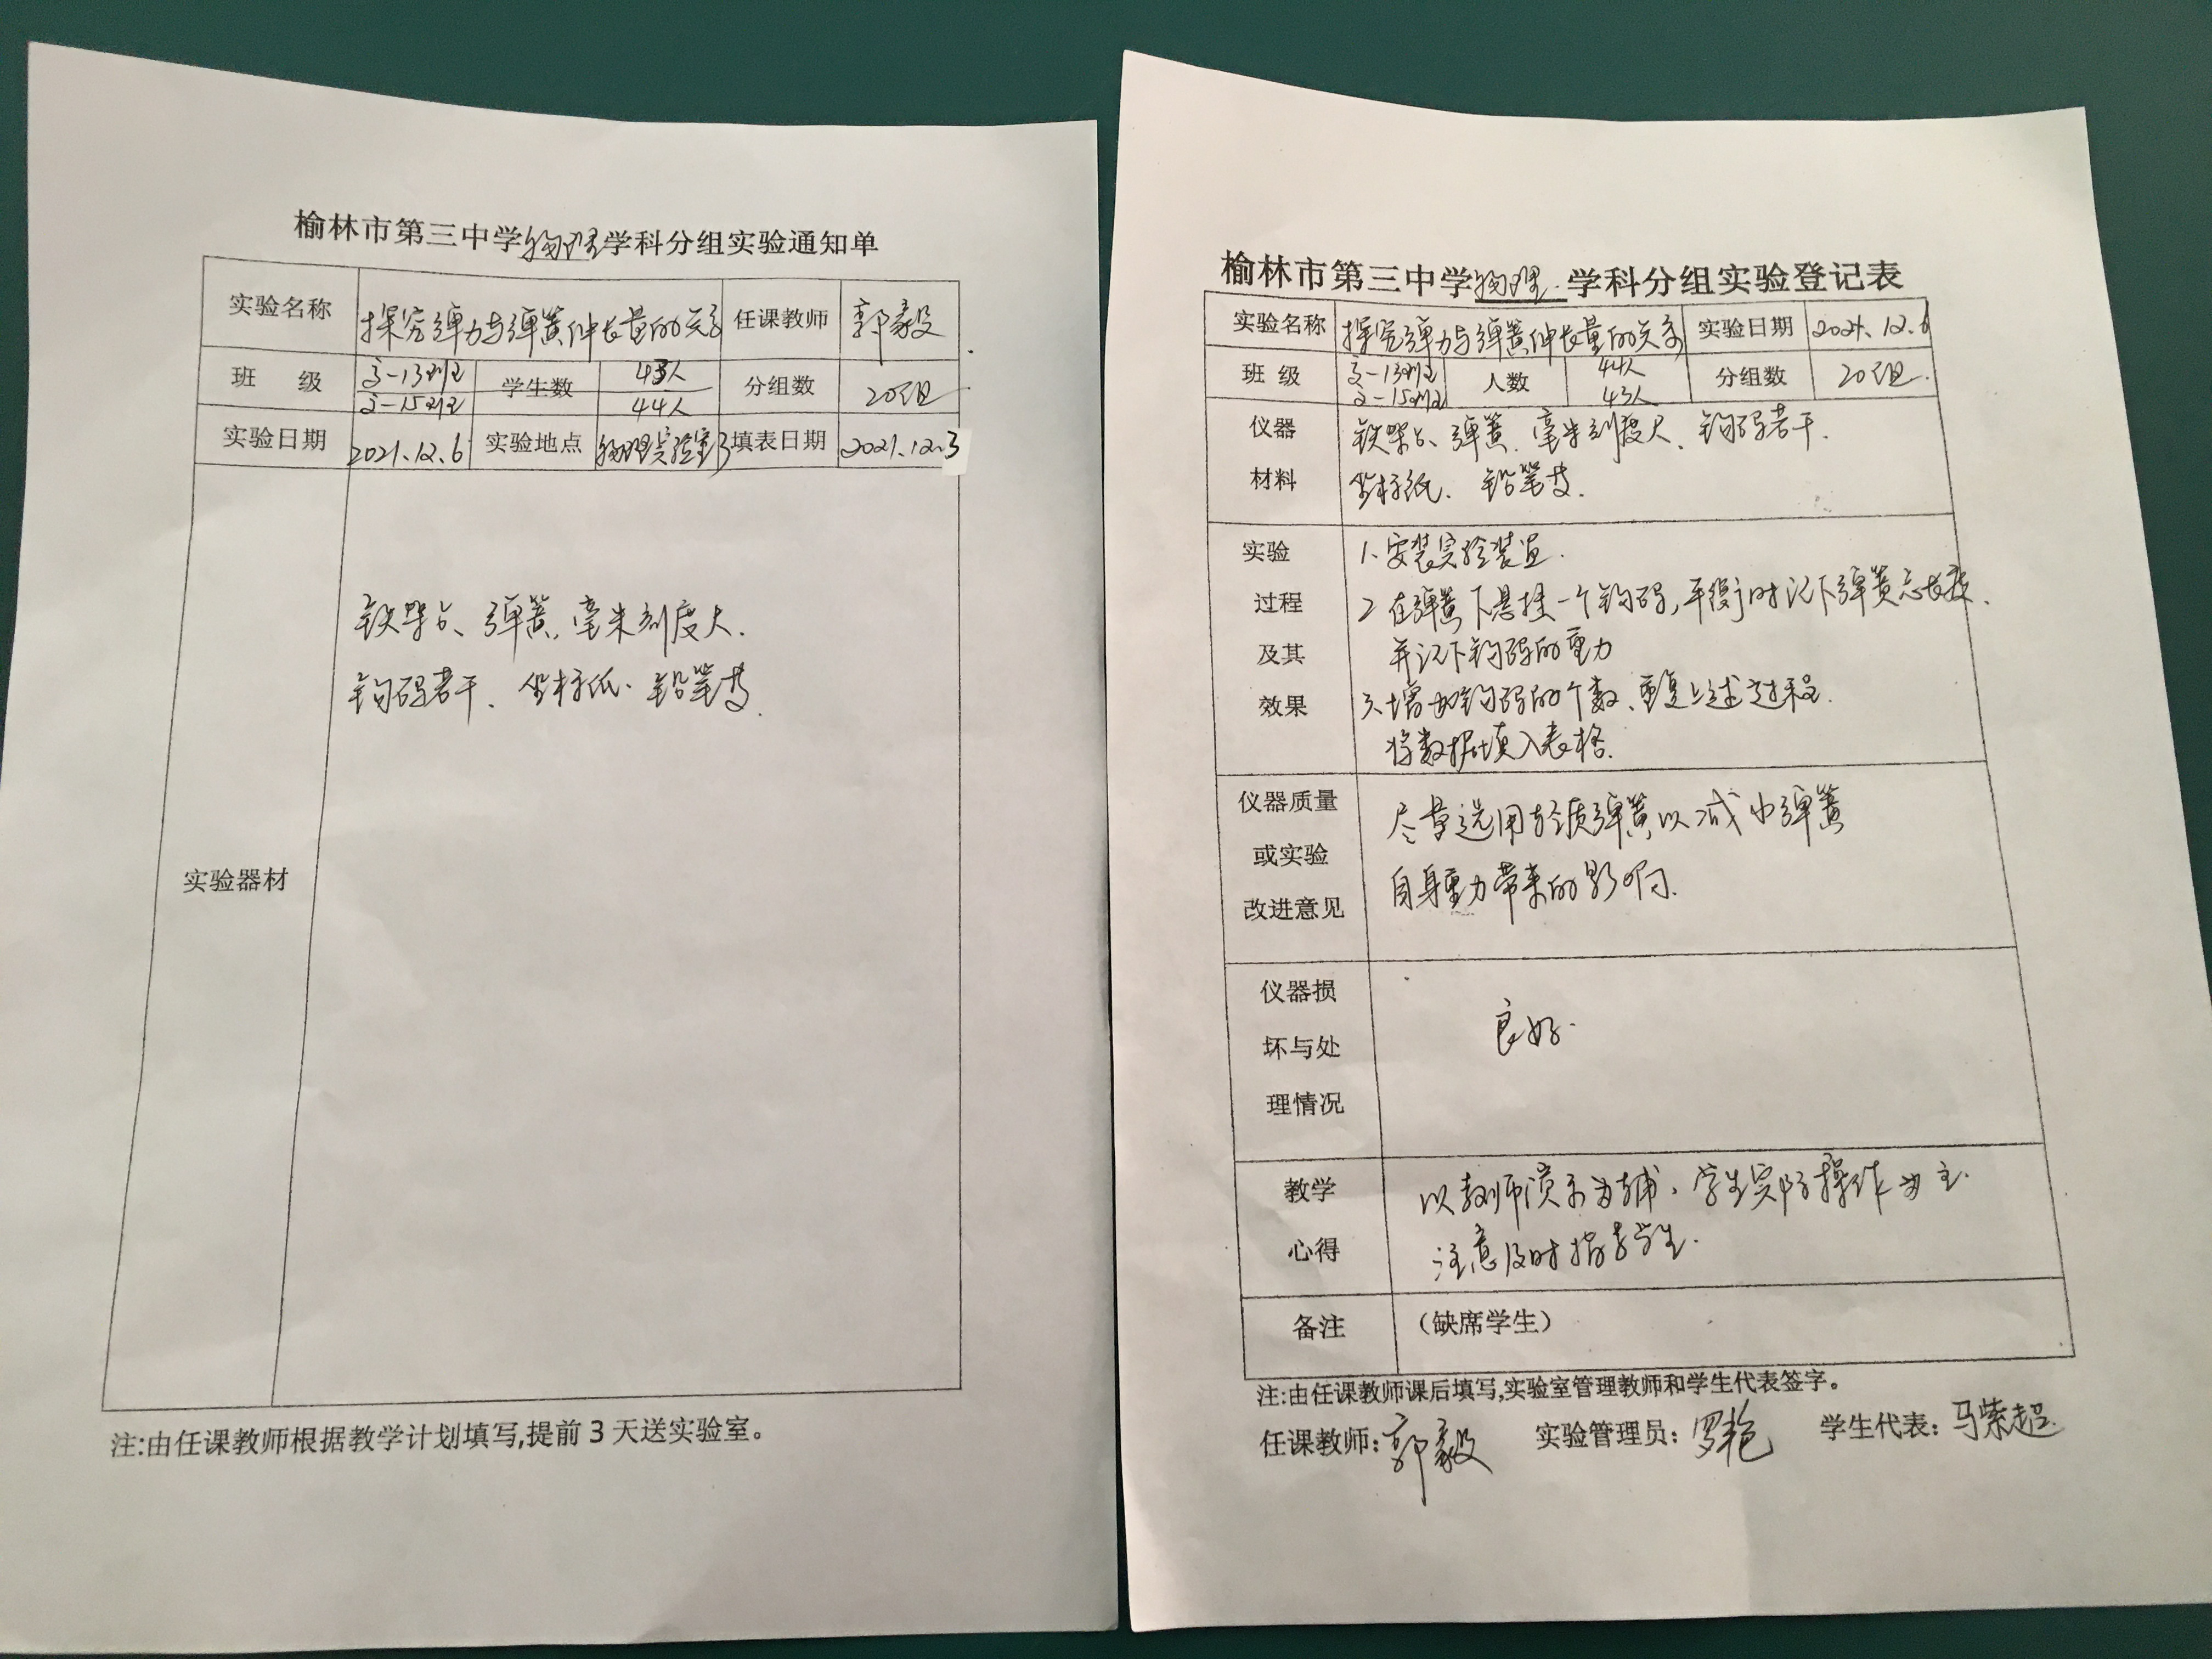 榆林市第三中学物理学科分组实验通知单
实验名称 探究弹力与弹簧伸长量的关系 任课教师 郭毅
班 级 高一13班 学生数 43人 分组数 20组
高一15班 44人
实验日期 2021.12.6 实验地点 物理实验室3 填表日期 2021.12.3
铁架台、弹簧、毫米刻度尺、
钩码若干、坐标纸、铅笔
实验器材
注:由任课教师根据教学计划填写,提前3天送实验室。
榆林市第三中学物理学科分组实验登记表
实验名称 探究弹力与弹簧伸长量的关系 实验日期 2021.12.6
班 级 高一13班 人数 44人 分组数 20组.
高一15班 43人
仪器 铁架台、弹簧、毫米刻度尺、钩码若干.
材料 坐标纸、铅笔
实验 1、安装实验装置.
过程 2 在弹簧下悬挂一个钩码,平衡时记下弹簧总长度、
及其 并记下钩码的重力
效果 3、增加钩码的个数、重复上述过程.
将数据填入表格.
仪器质量 尽量选用轻质弹簧以减小弹簧
或实验
改进意见 自身重力带来的影响.
仪器损
坏与处 良好.
理情况
教学 以教师演示为辅、学生实际操作为主.
心得 注意及时指导学生.
备注 (缺席学生)
注:由任课教师课后填写,实验室管理教师和学生代表签字。
任课教师:郭毅 实验管理员:罗艳 学生代表:马紫超